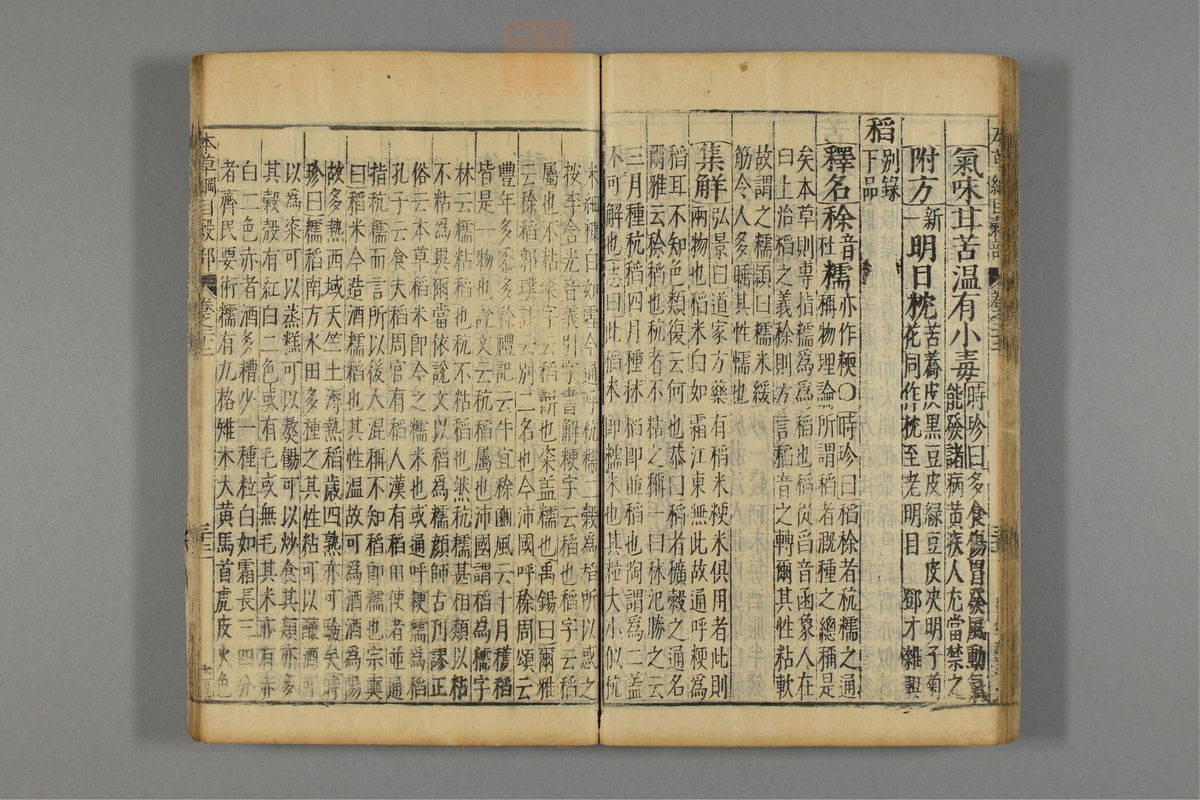 氣味甘苦溫有小毒時珍曰多食傷胃發風動氣
能發諸病黃疾人尤當禁之
附方新一明日枕苦蕎皮黑豆皮綠豆皮決明子菊
花同作枕至老明目 鄧才雜興
稻別錄下品
釋名稌音杜糯亦作稬〇時珍曰稻稌者秔糯之通
稱物理論所謂稻者溉種之總稱是
矣本草則專指糯為稻也稻從舀音函象人在
臼上治稻之義稌則方言稻音之轉爾其性粘軟
故謂之糯頴曰糯米緩
筋令人多睡其性懦也
集解弘景曰道家方藥有稻米粳米俱用者此則
兩物也稻米白如霜江東無此故通呼粳為
稻耳不知色類復云何也恭曰稻者穬穀之通名
爾雅云稌稻也秔者不粘之稱一曰秈氾勝之云
三月種秔稻四月種秫稻即並稻也陶謂為二蓋
不可解也志曰此稻米即糯米也其粒大小似秔
米細糠白如雪今通呼秔糯二穀為稻所以惑之
按李含光音義引字書解粳字云稻也稻字云稻
屬也不粘粢字云稻餅也粢蓋糯也禹錫曰爾雅
云稌稻郭璞註云別二名也今沛國呼稌周頌云
豐年多黍多稌禮記云牛宜稌豳風云十月穫稻
皆是一物也說文云秔稻屬也沛國謂稻為糯字
林云糯粘稻也秔不粘稻也然秔糯甚相類以粘
不粘為異爾當依說文以稻為糯顏師古刊謬正
俗云本草稻米即今之糯米也或通呼粳糯為稻
孔子云食夫稻周官有稻人漢有稻田使者並通
指秔糯而言所以後人混稱不知稻即糯也宗奭
曰稻米今造酒糯稻也其性溫故可為酒酒為陽
故多熱西域天竺土溽熱稻歲四熟亦可驗矣時
珍曰糯稻南方水田多種之其性粘可以釀酒可
以為粢可以蒸糕可以熬餳可以炒食其類亦多
其穀殼有紅白二色或有毛或無毛其米亦有赤
白二色赤者酒多糟少一種粒白如霜長三四分
者齊民要術糯有九格雉木大黃馬首虎皮火色
本草綱目穀部
卷之二十二